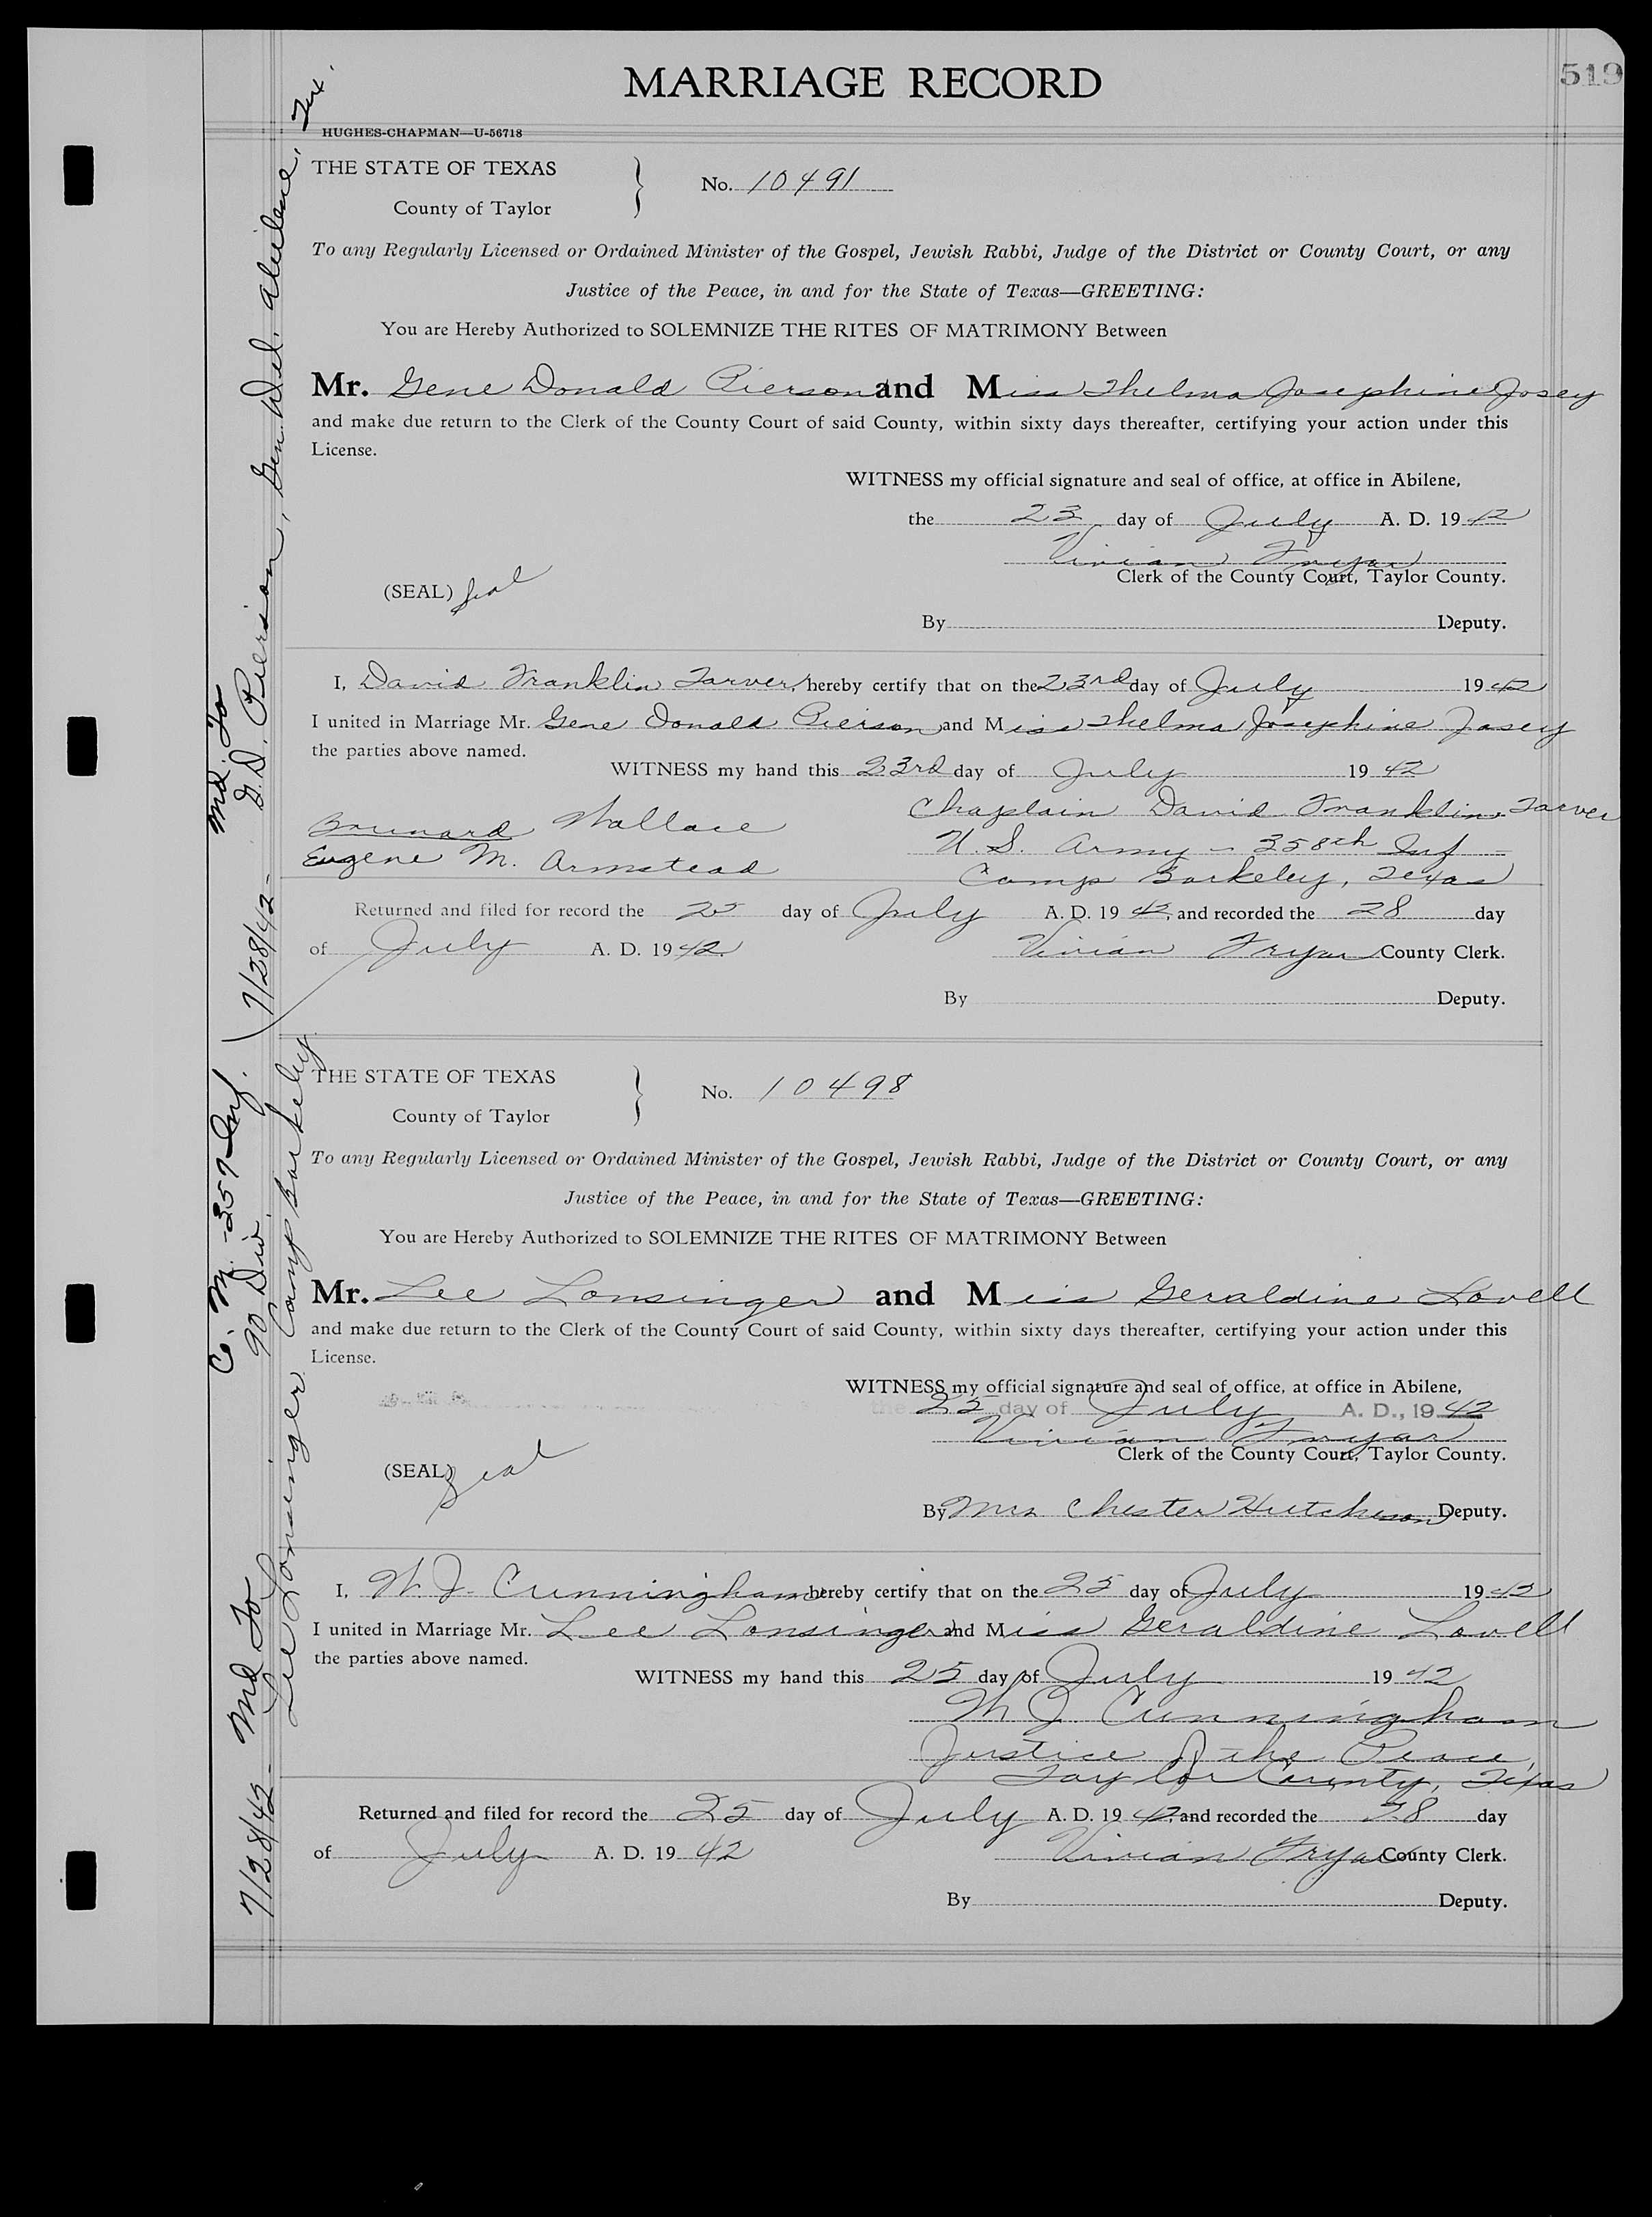 519
MARRIAGE RECORD
HUGHES-CHAPMAN—U-56718
THE STATE OF TEXAS
County of Taylor
No. 10491
To any Regularly Licensed or Ordained Minister of the Gospel, Jewish Rabbi, Judge of the District or County Court, or any
Justice of the Peace, in and for the State of Texas—GREETING:
You are Hereby Authorized to SOLEMNIZE THE RITES OF MATRIMONY Between
Mr. Gene Donald Pierson and Miss Thelma Josephine Josey
and make due return to the Clerk of the County Court of said County, within sixty days thereafter, certifying your action under this
License.
WITNESS my official signature and seal of office, at office in Abilene,
the 23 day of July A. D. 19 42
Vivian Fryar
Clerk of the County Court, Taylor County.
(SEAL) Seal
By Deputy.
I, David Franklin Tarver, hereby certify that on the 23rd day of July 19 42
I united in Marriage Mr. Gene Donald Pierson and Miss Thelma Josephine Josey
the parties above named.
WITNESS my hand this 23rd day of July 19 42
Chaplain David Franklin Tarver
Wallace
U. S. Army - 358th Inf
Eugene M. Armstead
Camp Barkeley, Texas
Returned and filed for record the 25 day of July A. D. 19 42, and recorded the 28 day
of July A. D. 19 42.
Vivian Fryar County Clerk.
By Deputy.
7/28/42 - Md. To
G. D. Pierson, Gen. Del. Abilene, Tex.
THE STATE OF TEXAS
County of Taylor
No. 10498
To any Regularly Licensed or Ordained Minister of the Gospel, Jewish Rabbi, Judge of the District or County Court, or any
Justice of the Peace, in and for the State of Texas—GREETING:
You are Hereby Authorized to SOLEMNIZE THE RITES OF MATRIMONY Between
Mr. Lee Lonsinger and Miss Geraldine Lovell
and make due return to the Clerk of the County Court of said County, within sixty days thereafter, certifying your action under this
License.
WITNESS my official signature and seal of office, at office in Abilene,
the 25 day of July A. D., 19 42
Vivian Fryar
Clerk of the County Court, Taylor County.
(SEAL) Seal
By Mrs Chester Hutcheson Deputy.
I, W. J. Cunningham hereby certify that on the 25 day of July 19 42
I united in Marriage Mr. Lee Lonsinger and Miss Geraldine Lovell
the parties above named.
WITNESS my hand this 25 day of July 19 42
W. J. Cunningham
Justice of the Peace,
Taylor County, Texas
Returned and filed for record the 25 day of July A. D. 19 42, and recorded the 28 day
of July A. D. 19 42
Vivian Fryar County Clerk.
By Deputy.
7/28/42 - Md To
Lee Lonsinger
Co. M. - 357 Inf.
90 Div.
Camp Barkeley